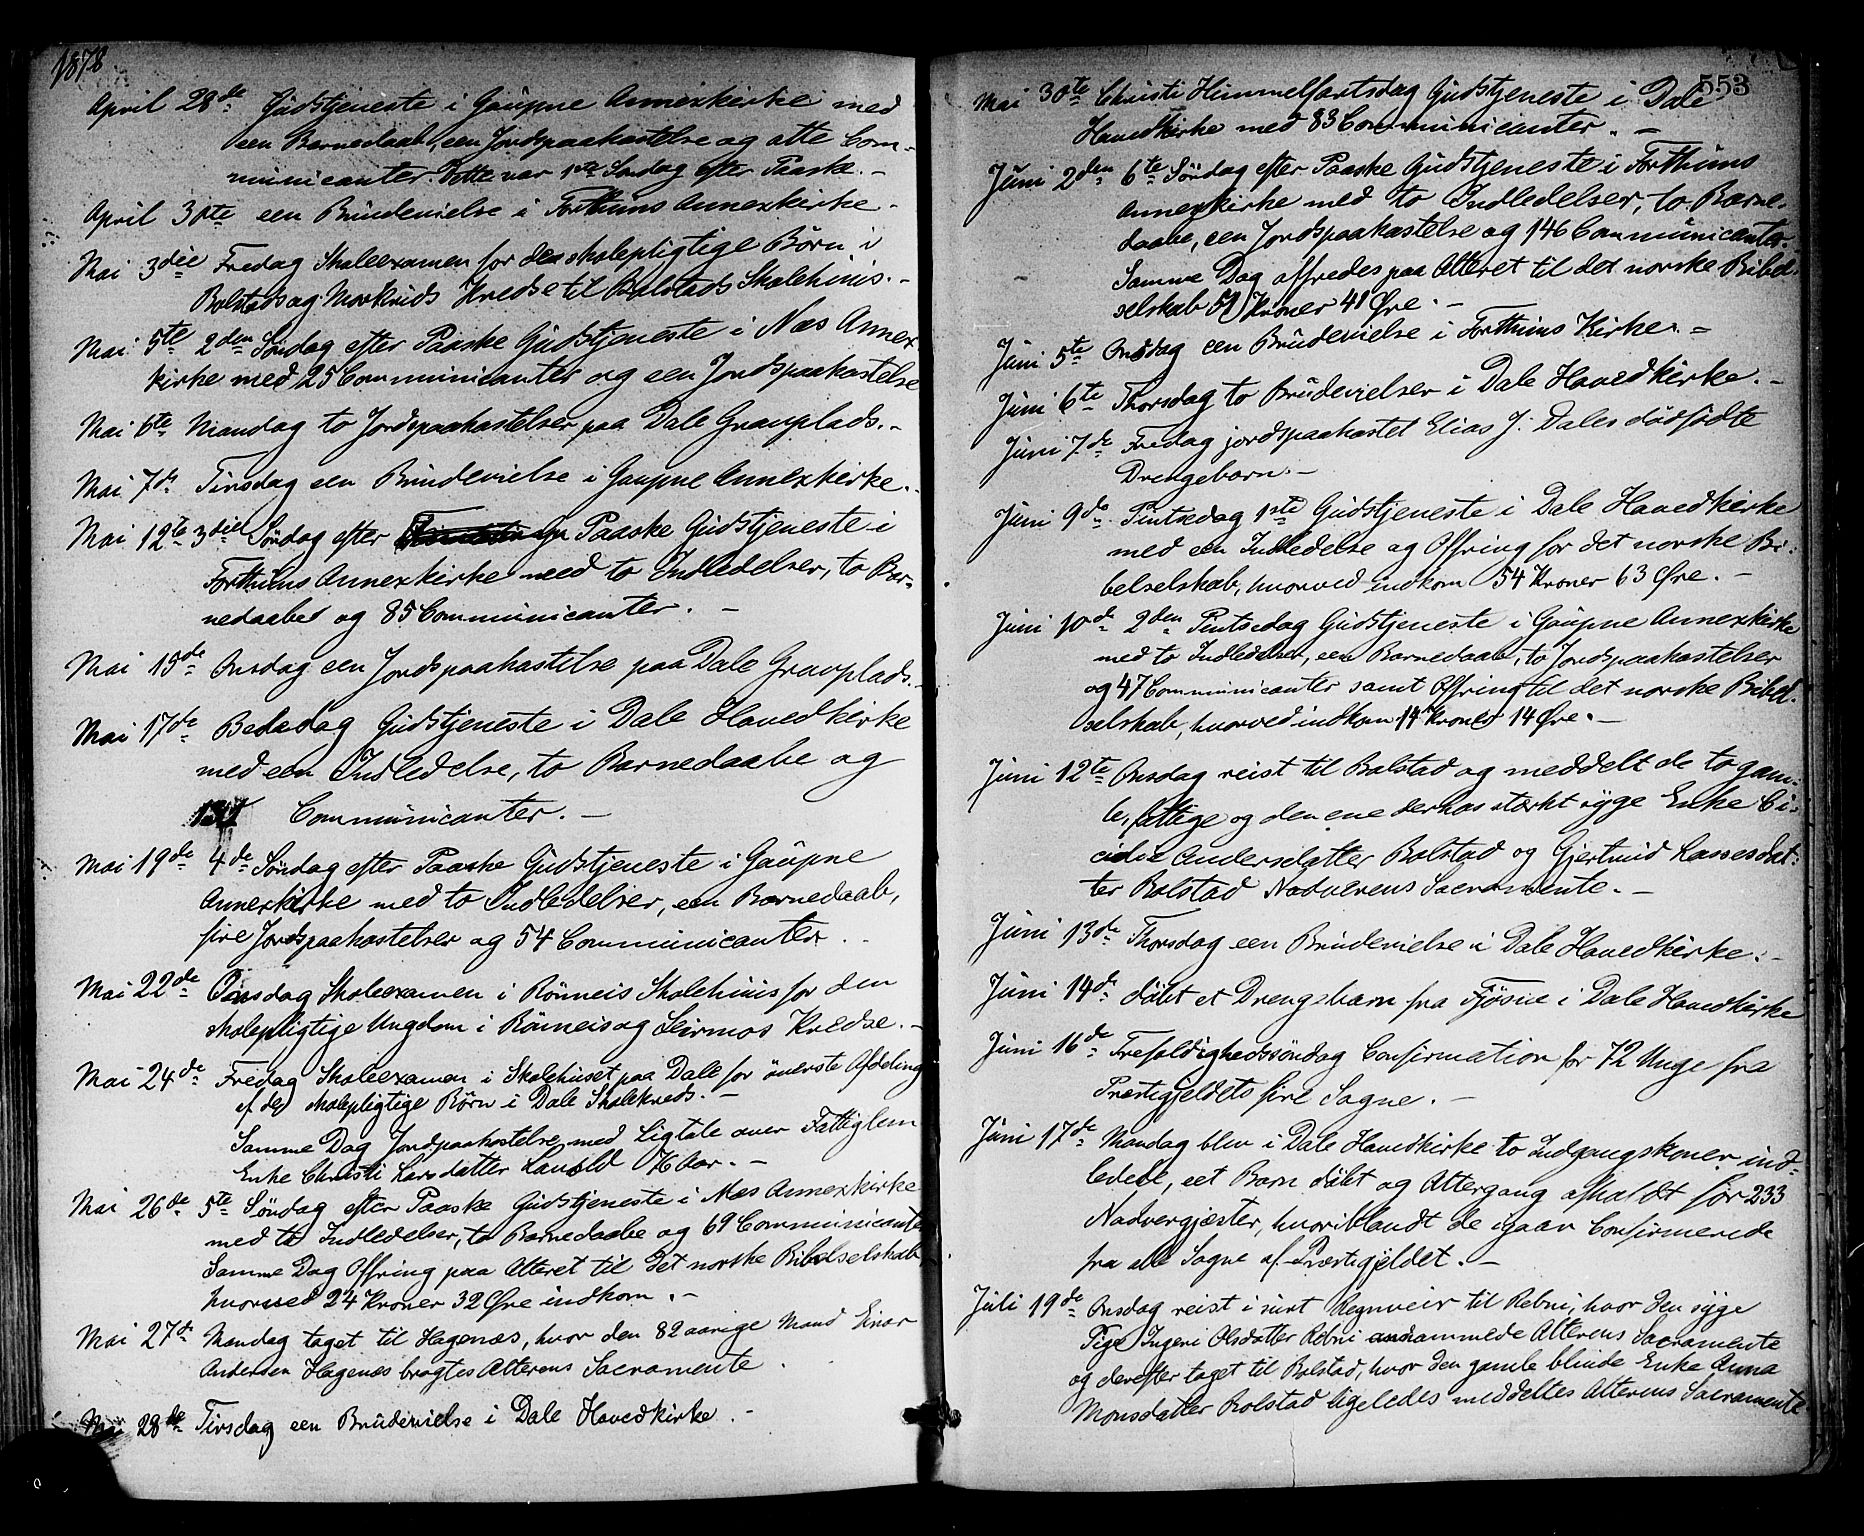 1878
April 28de Gudstjeneste i Gaupne Annexkirke med
een Barnedaab, een Jordspaakastelse og otte Com-
municanter. Dette var 1ste Søndag efter Paaske. -
April 30te een Brudevielse i Forthuns Annexkirke.
Mai 3die Fredag Skoleexamen for den skolepligtige Børn i
Bolstads og Morkrids Kredse til Bolstads Skolehuus. -
Mai 5te 2den Søndag efter Paaske Gudstjeneste i Næs Annex
kirke med 25 Communicanter og een Jordspaakastelse
Mai 6te Mandag to Jordspaakastelser paa Dale Gravplads. -
Mai 7de Tirsdag een Brudevielse i Gaupne Annexkirke.
Mai 12te 3die Søndag efter Paaske Gudstjeneste i
Forthuns Annexkirke med to Indledelser, to Bar-
nedaabe og 85 Communicanter. -
Mai 15de Onsdag een Jordspaakastelse paa Dale Gravplads. -
Mai 17de Bededag Gudstjeneste i Dale Hovedkirke
med een Indledelse, to Barnedaabe og
Communicanter. -
Mai 19de 4de Søndag efter Paaske Gudstjeneste i Gaupne
Annexkirke med to Indledelser, een Barnedaab,
fire Jordspaakastelser og 54 Communicanter.
Mai 22de Onsdag Skoleexamen i Rønneis Skolehuus for den
skolepligtige Ungdom i Rønneis og Leirmos Kredse. -
Mai 24de Fredag Skoleexamen i Skolehuset paa Dale for øverste Afdeling
af de skolepligtige Børn i Dale Skolekreds. -
Samme Dag Jordpaakastelse med Ligtale over Fattiglem
Enke Christi Larsdatter 76 Aar. -
Mai 26de 5te Søndag efter Paaske Gudstjeneste i Næs Annexkirke
med to Indledelser, to Barnedaabe og 69 Communicanter
Samme Dag Offring paa Alteret til det norske Bibelselskab
hvorved 24 Kroner 32 Øre indkom. -
Mai 27de Mandag taget til Hagenæs, hvor den 82 aarige Mand Einar
Andersen Hagenæs bragtes Alterens Sacramente.
Mai 28de Tirsdag een Brudevielse i Dale Hovedkirke. -
553
Mai 30te Christi Himmelfartsdag Gudstjeneste i Dale
Hovedkirke med 83 Communicanter. -
Juni 2den 6te Søndag efter Paaske Gudstjeneste i Forthuns
Annexkirke med to Indledelser, to Barne-
daabe, een Jordspaakastelse og 146 Communicanter.
Samme Dag offredes paa Alteret til det norske Bibel-
selskab 51 Kroner 41 Øre. -
Juni 5te Onsdag een Brudevielse i Forthuns Kirke. -
Juni 6te Thorsdag to Brudevielser i Dale Hovedkirke. -
Juni 7de Fredag jordspaakastet Elias J. Dales dødfødte
Drengebarn. -
Juni 9de Pintsedag 1ste Gudstjeneste i Dale Hovedkirke
med een Indledelse og Offring for det norske Bi-
belselskab, hvorved indkom 54 Kroner 63 Øre. -
Juni 10de 2den Pintsedag Gudstjeneste i Gaupne Annexkirke
med to Indledelser, een Barnedaab, to Jordspaakastelser
og 47 Communicanter samt Offring til det norske Bibel-
selskab, hvorved indkom 14 Kroner 14 Øre. -
Juni 12te Onsdag reist til Bolstad og meddelt de to gam-
le, fattige og den ene derhos stærkt syge Enke Ci-
cilie Andersdatter Bolstad og Gjertrud Lassesdat-
ter Bolstad Nadverens Sacramente. -
Juni 13de Thorsdag een Brudevielse i Dale Hovedkirke. -
Juni 14de døbt et Drengebarn fra Fjøsne i Dale Hovedkirke
Juni 16de Trefoldighedssøndag Confirmation for 72 Unge fra
Præstegjeldets fire Sogne. -
Juni 17de Mandag blev i Dale Hovedkirke to Indgangskoner ind-
ledede, eet Barn døbt og Altergang afholdt for 233
Nadvergjæster, hvoriblandt de igaar Confirmerede
fra alle Sogne af Præstegjeldet. -
Juli 19de Onsdag reist i surt Regnveir til Rebni, hvor den syge
Pige Ingeri Olsdatter Rebni annammede Alterens Sacramente
og derefter taget til Bolstad, hvor den gamle blinde Enke Anna
Monsdatter Bolstad ligeledes meddeltes Alterens Sacramente